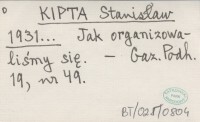 KIPTA Stanisław
1931... Jak organizowa-
liśmy się. – Gaz. Podh.
19, nr 49.
BT/028/0804